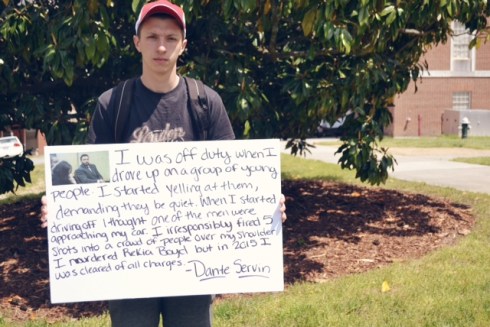 I was off duty when I
drove up on a group of young
people. I started yelling at them,
demanding they be quiet. When I started
driving off I thought one of the men were
approaching my car. I irresponsibly fired 5
shots into a crowd of people over my shoulder
I murdered Rekia Boyd but in 2015 I
was cleared of all charges.
-Dante Servin